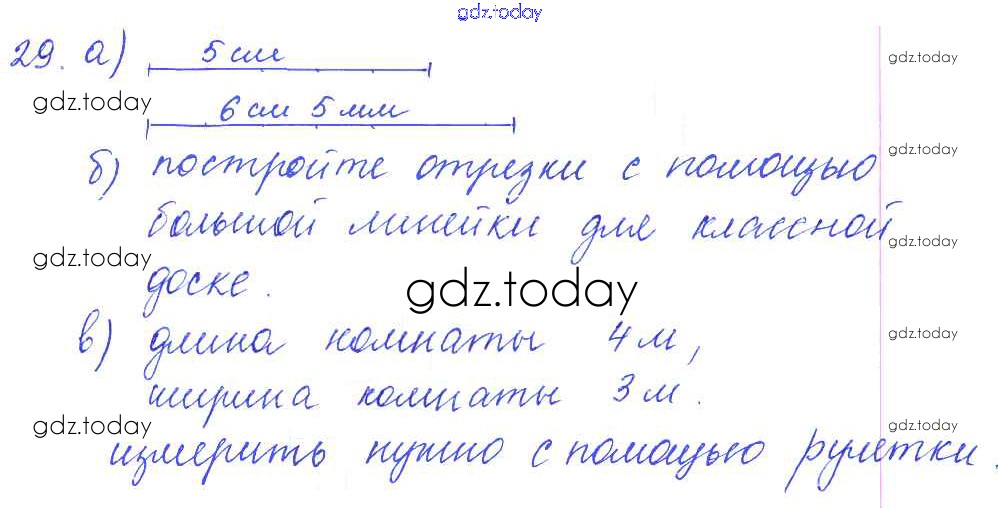 gdz.today
29. а) 5 см
gdz.today
gdz.today
6 см 5 мм
б) постройте отрезки с помощью
gdz.today
большой линейки для классной
gdz.today
gdz.today
доске.
gdz.today
в) длина комнаты 4 м,
gdz.today
ширина комнаты 3 м.
gdz.today
gdz.today
измерить нужно с помощью рулетки.